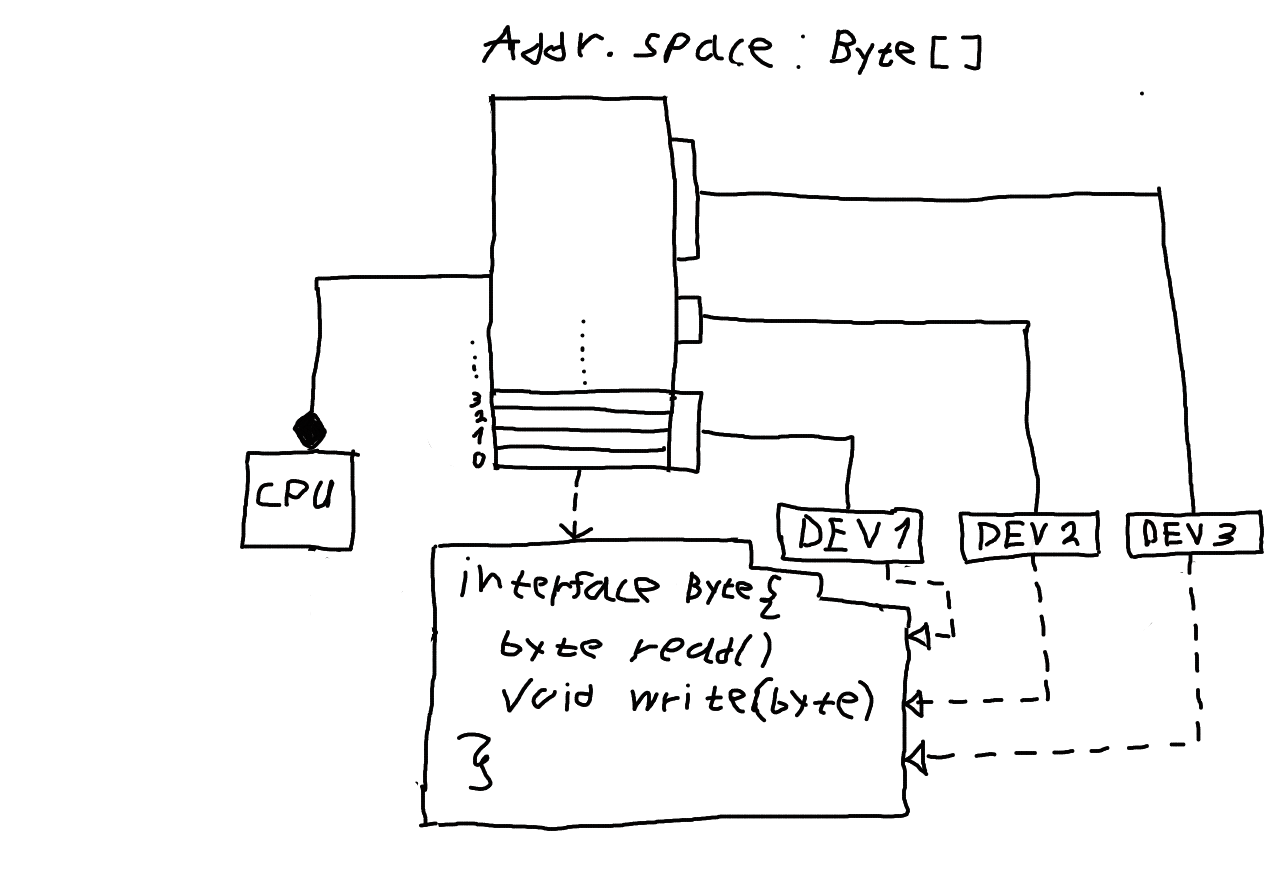 Addr. space : Byte[]
3
2
1
0
CPU
DEV1
DEV2
DEV3
interface Byte{
byte read()
void write(byte)
}